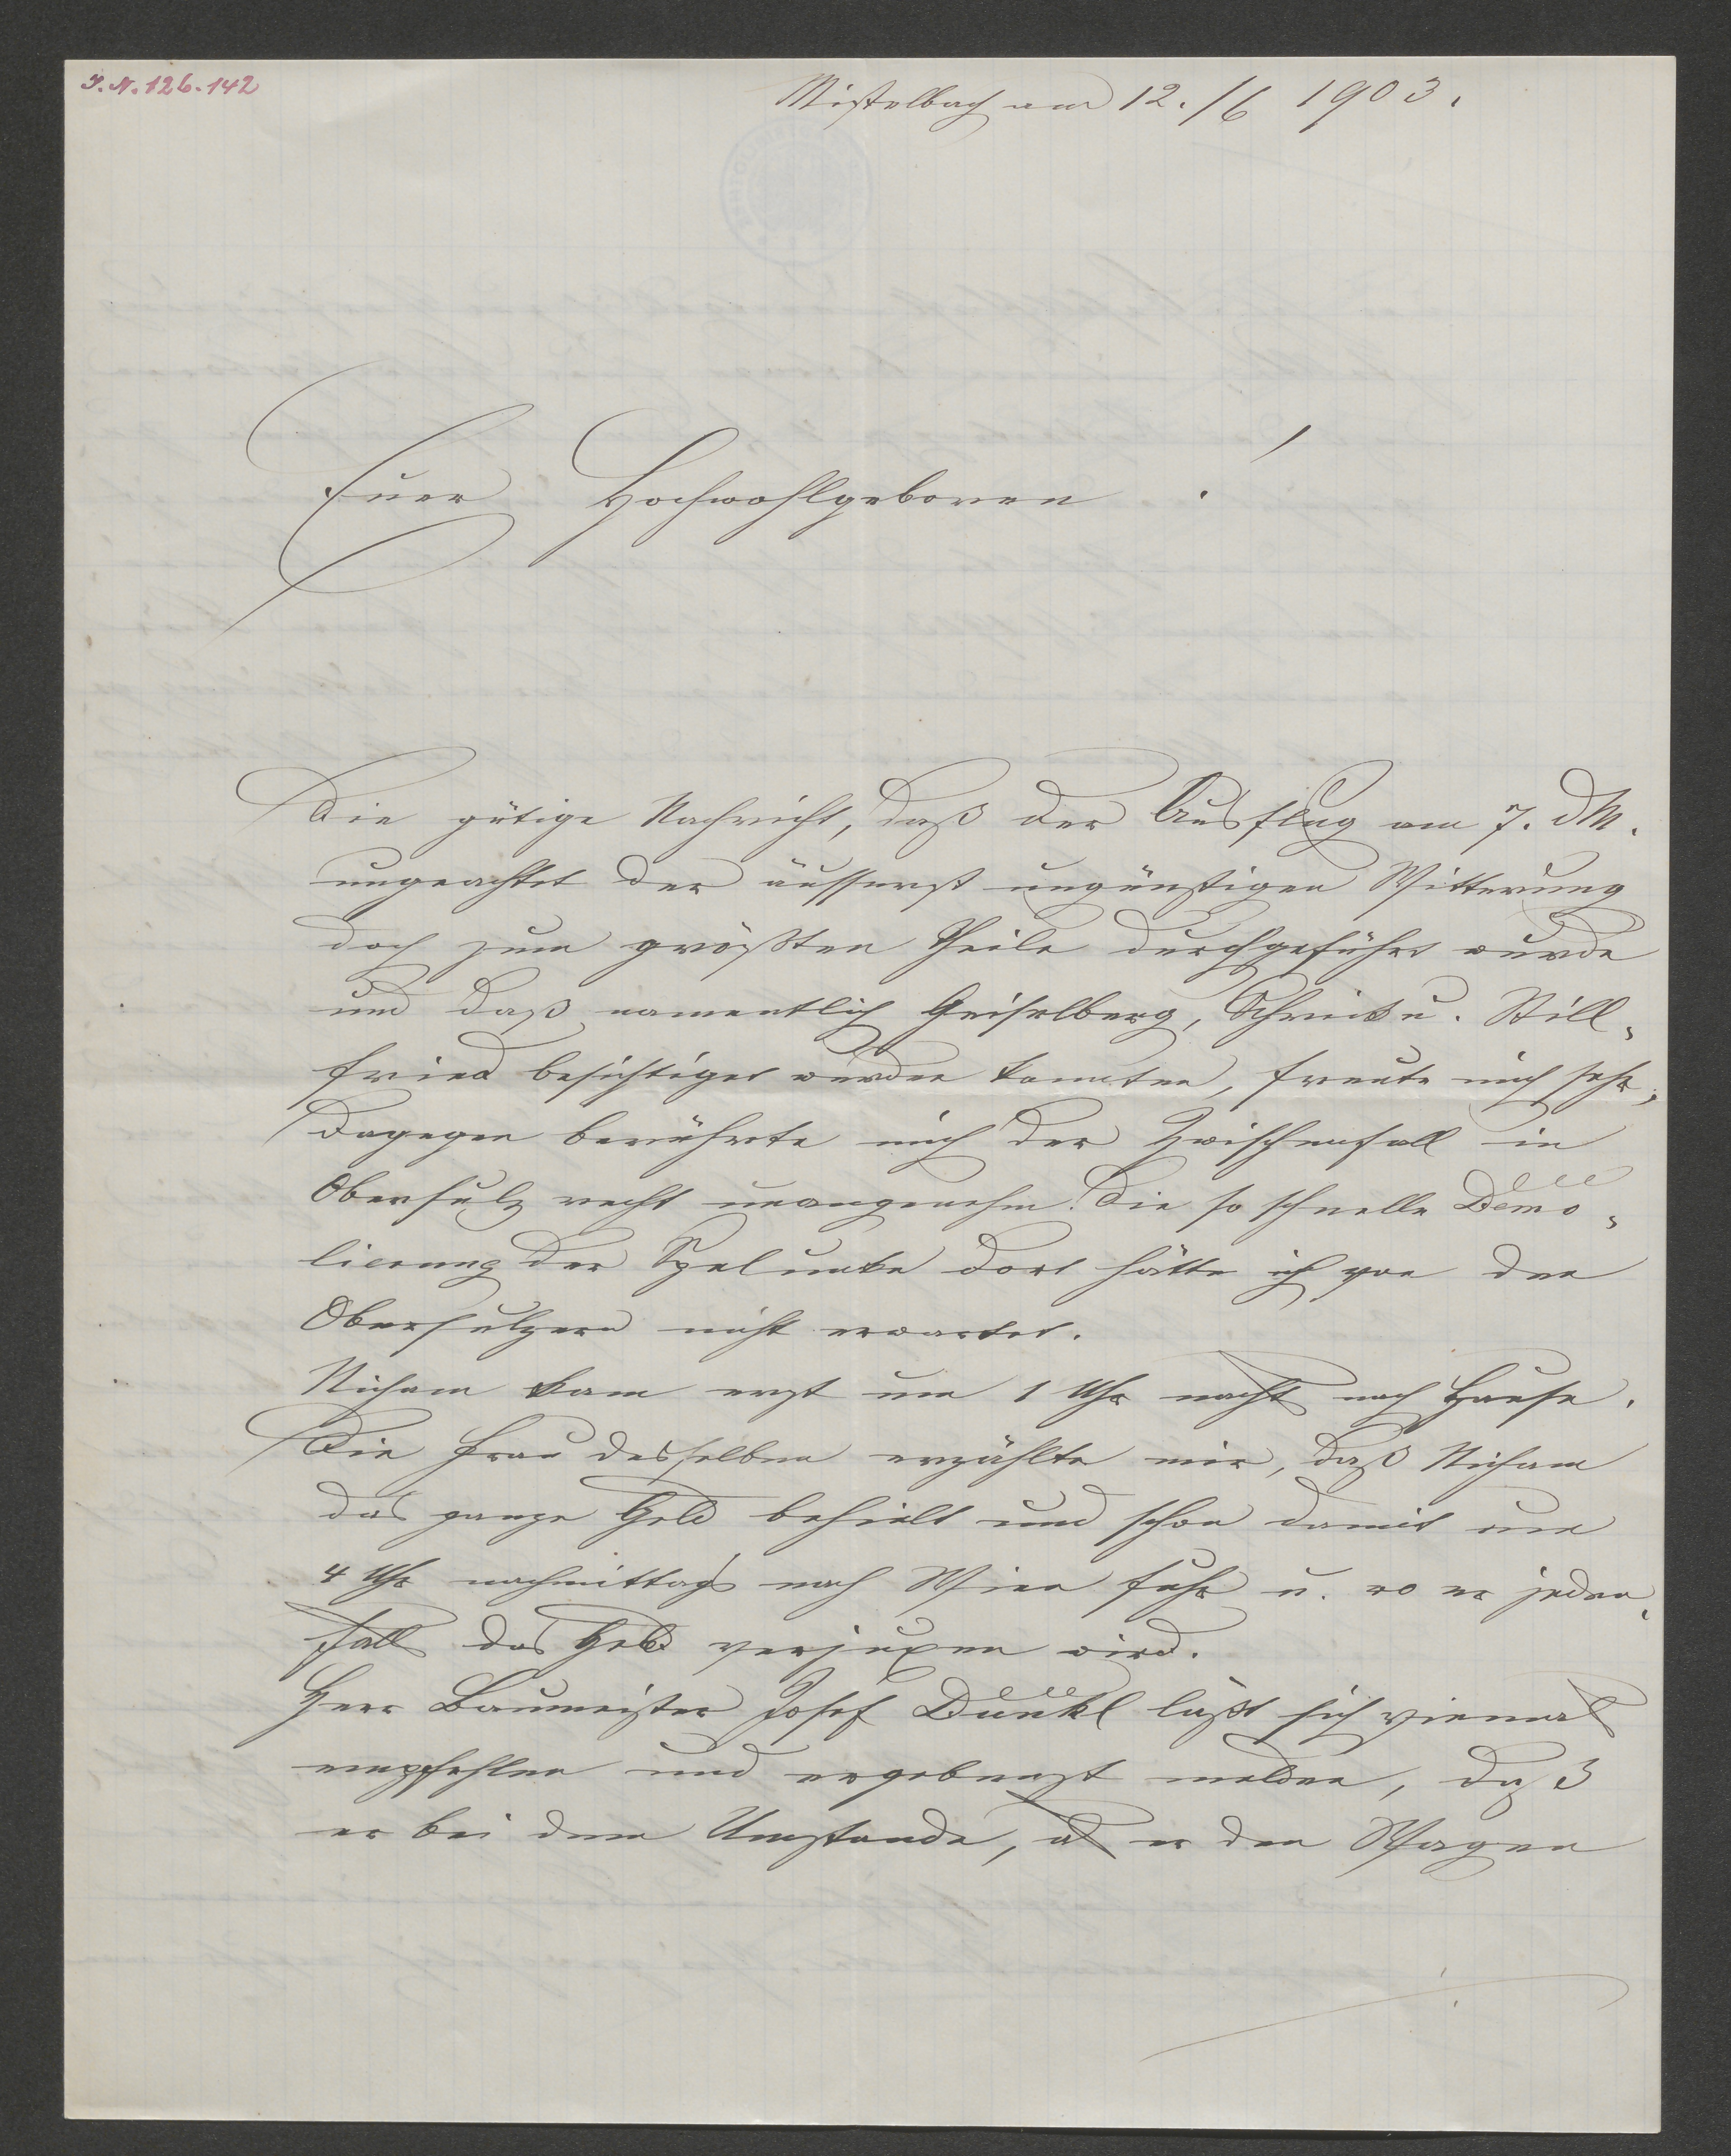 I. N. 126.142
Mistelbach am 12./6 1903.
Euer Hochwohlgeboren!
Die gütige Nachricht, daß der Ausflug am 7. dM.
ungeachtet der äusserst ungünstigen Witterung
doch zum größten Theile durchgeführt wurde
und daß namentlich Geiselberg, Schrick u. Still¬
fried besichtiget werden konnten, freute mich sehr,
dagegen berührte mich der Zwischenfall in
Obersulz recht unangenehm. Die so schnelle Demo¬
lierung der Spelunke dort hätte ich von den
Obersulzern nicht erwartet.
kam erst um 1 Uhr nachts nach Hause.
Die Frau desselben erzählte mir, daß
das ganze Geld behielt und schon damit um
4 Uhr nachmittags nach Wien fuhr u. wo er jeden¬
falls das Geld verjuxen wird.
Herr Baumeister Josef Dunkl läßt sich
empfehlen und ergebenst melden, daß
er bei dem Umstande, als er den Wagen